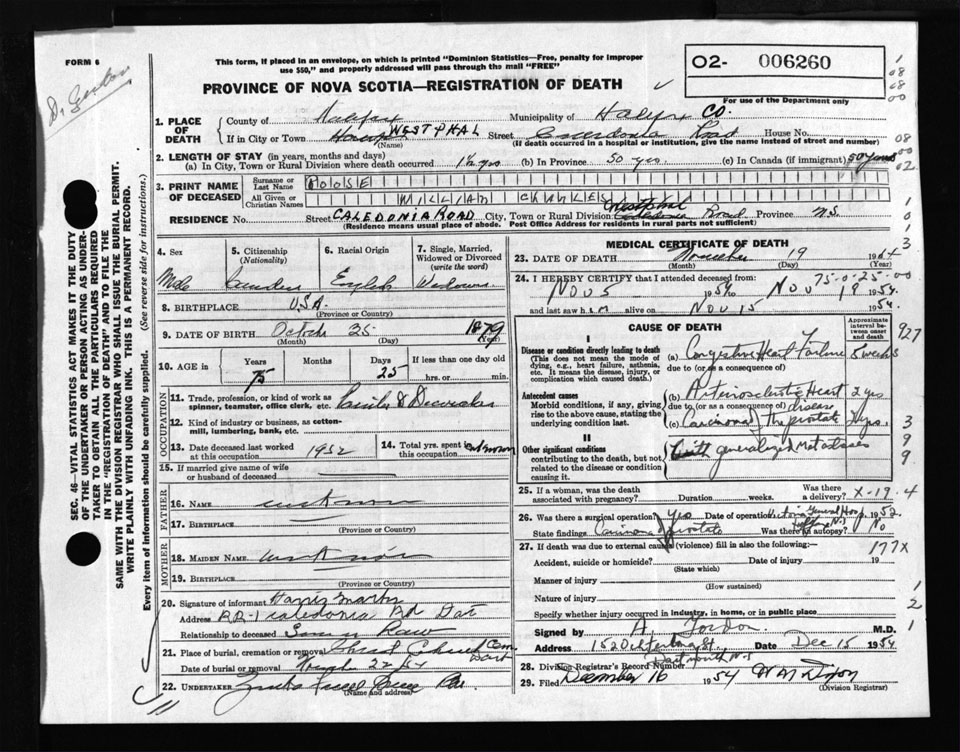 FORM 6
This form, if placed in an envelope, on which is printed "Dominion Statistics—Free, penalty for improper
use $50," and properly addressed will pass through the mail "FREE"
O2- 006260
PROVINCE OF NOVA SCOTIA—REGISTRATION OF DEATH
For use of the Department only
1. PLACE OF DEATH
County of Halifax Municipality of Halifax Co.
If in City or Town WESTPHAL Street Caledonia Road House No.
(Name) (If death occurred in a hospital or institution, give the name instead of street and number)
2. LENGTH OF STAY (in years, months and days)
(a) In City, Town or Rural Division where death occurred 1½ yrs (b) In Province 50 yrs. (c) In Canada (if immigrant) 50 years
3. PRINT NAME OF DECEASED
Surname or Last Name POOSE
All Given or Christian Names WILLIAM CHARLES
RESIDENCE No. Street CALEDONIA ROAD City, Town or Rural Division Westphal Caledonia Road Province N.S.
(Residence means usual place of abode. Post Office Address for residents in rural parts not sufficient)
4. Sex Male
5. Citizenship (Nationality) Canadian
6. Racial Origin English
7. Single, Married, Widowed or Divorced (write the word) Widower
8. BIRTHPLACE U.S.A.
(Province or Country)
9. DATE OF BIRTH October 25 1879
(Month) (Day) (Year)
10. AGE in Years 75 Months Days 25 If less than one day old
hrs. or min.
OCCUPATION
11. Trade, profession, or kind of work as
spinner, teamster, office clerk, etc. Painter & Decorator
12. Kind of industry or business, as cotton-
mill, lumbering, bank, etc.
13. Date deceased last worked
at this occupation 1952
14. Total yrs. spent in
this occupation unknown
15. If married give name of wife
or husband of deceased
FATHER
16. NAME unknown
17. BIRTHPLACE
(Province or Country)
MOTHER
18. MAIDEN NAME unknown
19. BIRTHPLACE
(Province or Country)
20. Signature of informant Harris
Address RR-1 Caledonia Rd Dart
Relationship to deceased Son in Law
21. Place of burial, cremation or removal Christ Church Cem. Dart
Date of burial or removal 22/54
22. UNDERTAKER
(Name and Address)
MEDICAL CERTIFICATE OF DEATH
23. DATE OF DEATH November 19 1954
(Month) (Day) (Year)
75-0-25-00
24. I HEREBY CERTIFY that I attended deceased from:
Nov 5 1954 to Nov 19 1954.
and last saw him alive on Nov 15 1954.
CAUSE OF DEATH
Approximate interval between onset and death
I
Disease or condition directly leading to death
(This does not mean the mode of
dying, e.g., heart failure, asthenia,
etc. It means the disease, injury, or
complication which caused death.)
(a) Congestive Heart Failure 5 weeks
due to (or as a consequence of)
Antecedent causes
Morbid conditions, if any, giving
rise to the above cause, stating the
underlying condition last.
(b) Arteriosclerotic Heart disease 2 yrs
due to (or as a consequence of)
(c) Carcinoma of The prostate 2 yrs.
II
Other significant conditions
contributing to the death, but not
related to the disease or condition
causing it.
With generalized Metastases
25. If a woman, was the death
associated with pregnancy? Duration weeks. Was there a delivery? X-19-4
26. Was there a surgical operation? Yes Date of operation Victoria General Hosp. Halifax N.S. 1952.
State findings Carcinoma of prostate Was there an autopsy? No
27. If death was due to external causes (violence) fill in also the following:—
177X
Accident, suicide or homicide? Date of injury 19
(State which)
Manner of injury
(How sustained)
Nature of injury
Specify whether injury occurred in industry, in home, or in public place
Signed by A. Gordon M.D.
Address 152 Dartmouth N.S. Date Dec 15 1954
28. Division Registrar's Record Number
29. Filed December 16 1954 W M Dixon
(Division Registrar)
Dr Gordon
927
399
SEC. 46—VITAL STATISTICS ACT MAKES IT THE DUTY
OF THE UNDERTAKER OR PERSON ACTING AS UNDER-
TAKER TO OBTAIN ALL THE PARTICULARS REQUIRED
IN THE "REGISTRATION OF DEATH" AND TO FILE THE
SAME WITH THE DIVISION REGISTRAR WHO SHALL ISSUE THE BURIAL PERMIT.
WRITE PLAINLY WITH UNFADING INK. THIS IS A PERMANENT RECORD.
Every item of information should be carefully supplied. (See reverse side for instructions.)